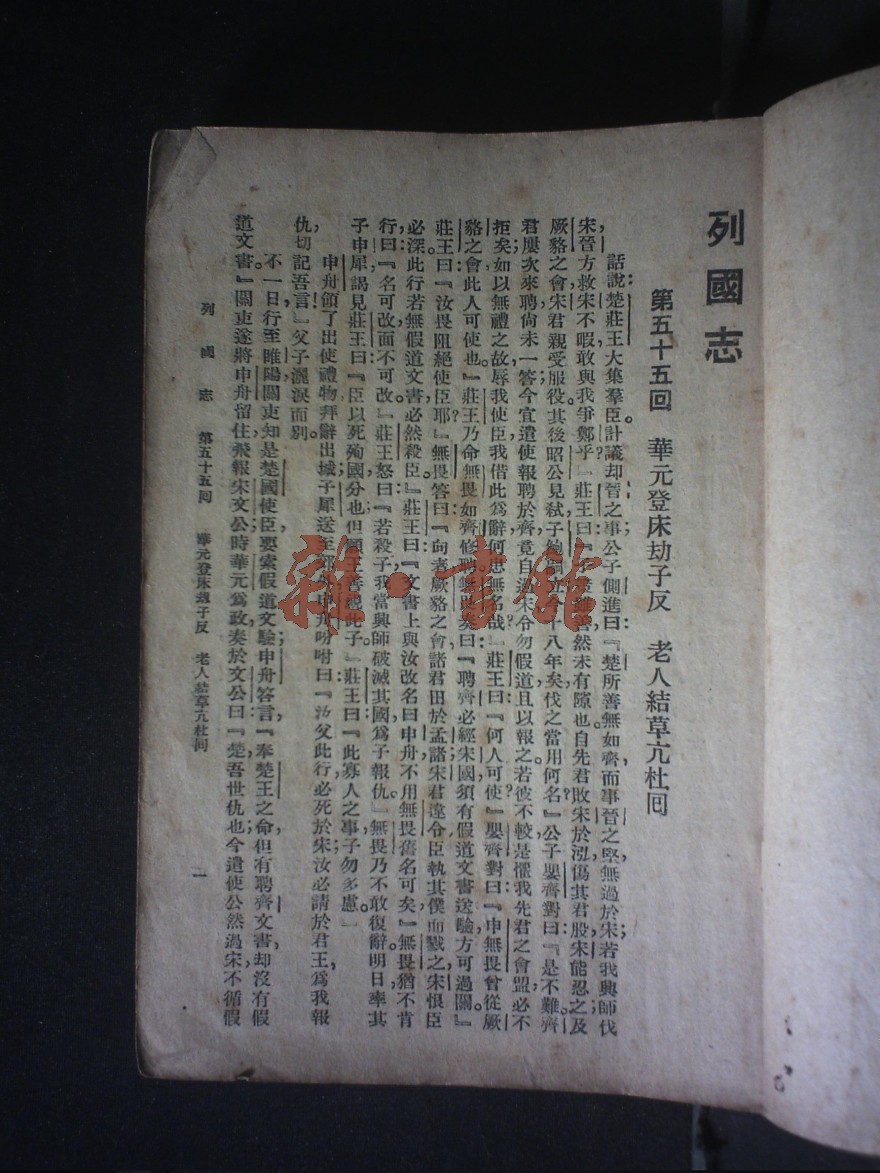 列國志
第五十五回　華元登床劫子反　老人結草亢杜回
話說楚莊王大集羣臣計議却晉之事公子側進曰『楚所善無如齊而事晉之堅無過於宋若我興師伐
宋晉方救宋不暇敢與我爭鄭乎』莊王曰『子策雖善然未有隙也自先君敗宋於泓傷其君股宋能忍之及
厥貉之會宋君親受服役其後昭公見弒子鮑嗣立今十八年矣伐之當用何名』公子嬰齊對曰『是不難齊
君屢次來聘尙未一答今宜遣使報聘於齊竟自過宋令勿假道且以報之若彼不較是懼我先君之會盟必不
拒矣如以無禮之故辱我使臣我借此爲辭何患無名哉』莊王曰『何人可使』嬰齊對曰『申無畏曾從厥
貉之會此人可使也』莊王乃命無畏如齊修聘無畏奏曰『聘齊必經宋國須有假道文書送驗方可過關』
莊王曰『汝畏阻絕使臣耶』無畏答曰『向者厥貉之會諸君田於孟諸宋君違令臣執其僕而戮之宋恨臣
必深此行若無假道文書必然殺臣』莊王曰『文書上與汝改名曰申舟不用無畏舊名可矣』無畏猶不肯
行曰『名可改面不可改』莊王怒曰『若殺子我當興師破滅其國爲子報仇』無畏乃不敢復辭明日率其
子申犀謁見莊王曰『臣以死殉國分也但願王善視此子』莊王曰『此寡人之事子勿多慮』
申舟領了出使禮物拜辭出城子犀送至郊外申舟吩咐曰『汝父此行必死於宋汝必請於君王爲我報
仇切記吾言』父子灑淚而別
不一日行至睢陽關吏知是楚國使臣要索假道文驗申舟答言『奉楚王之命但有聘齊文書却沒有假
道文書』關吏遂將申舟留住飛報宋文公時華元爲政奏於文公曰『楚吾世仇也今遣使公然過宋不循假
列國志　第五十五回　華元登床劫子反　老人結草亢杜回　一
雜·書館